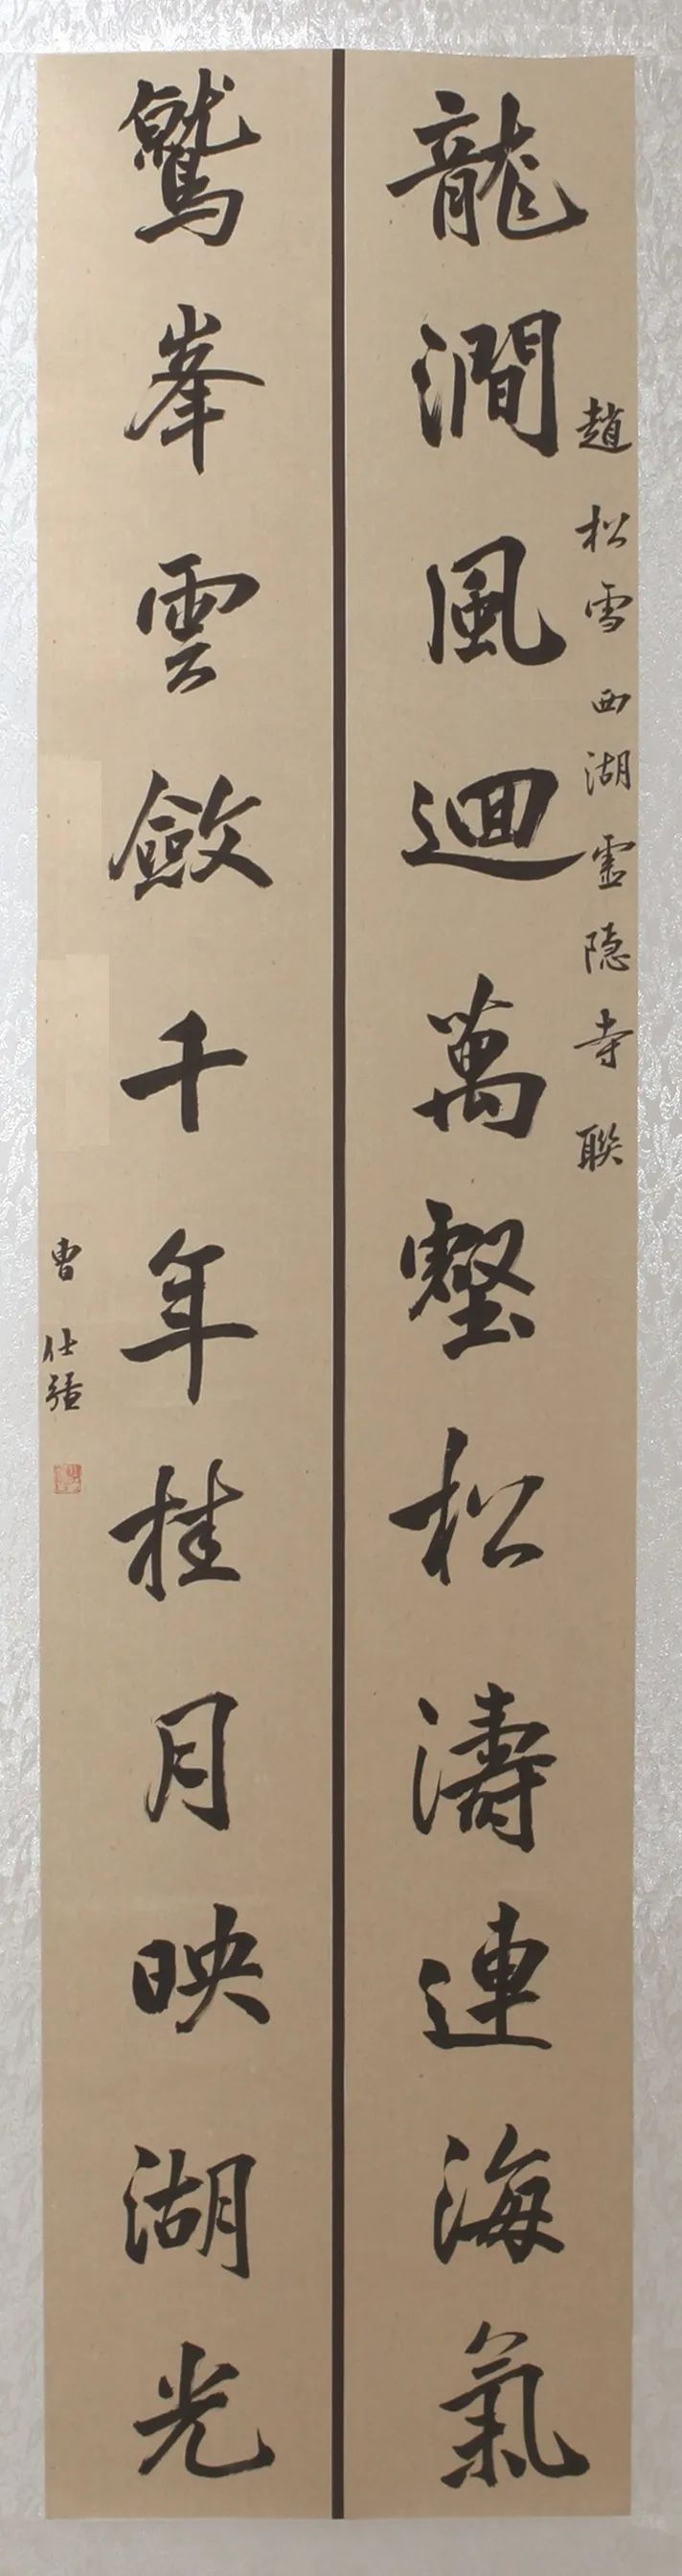 趙松雪西湖靈隐寺聯
龍澗風迴萬壑松濤連海氣
鷲峯雲斂千年桂月映湖光
曹仕强